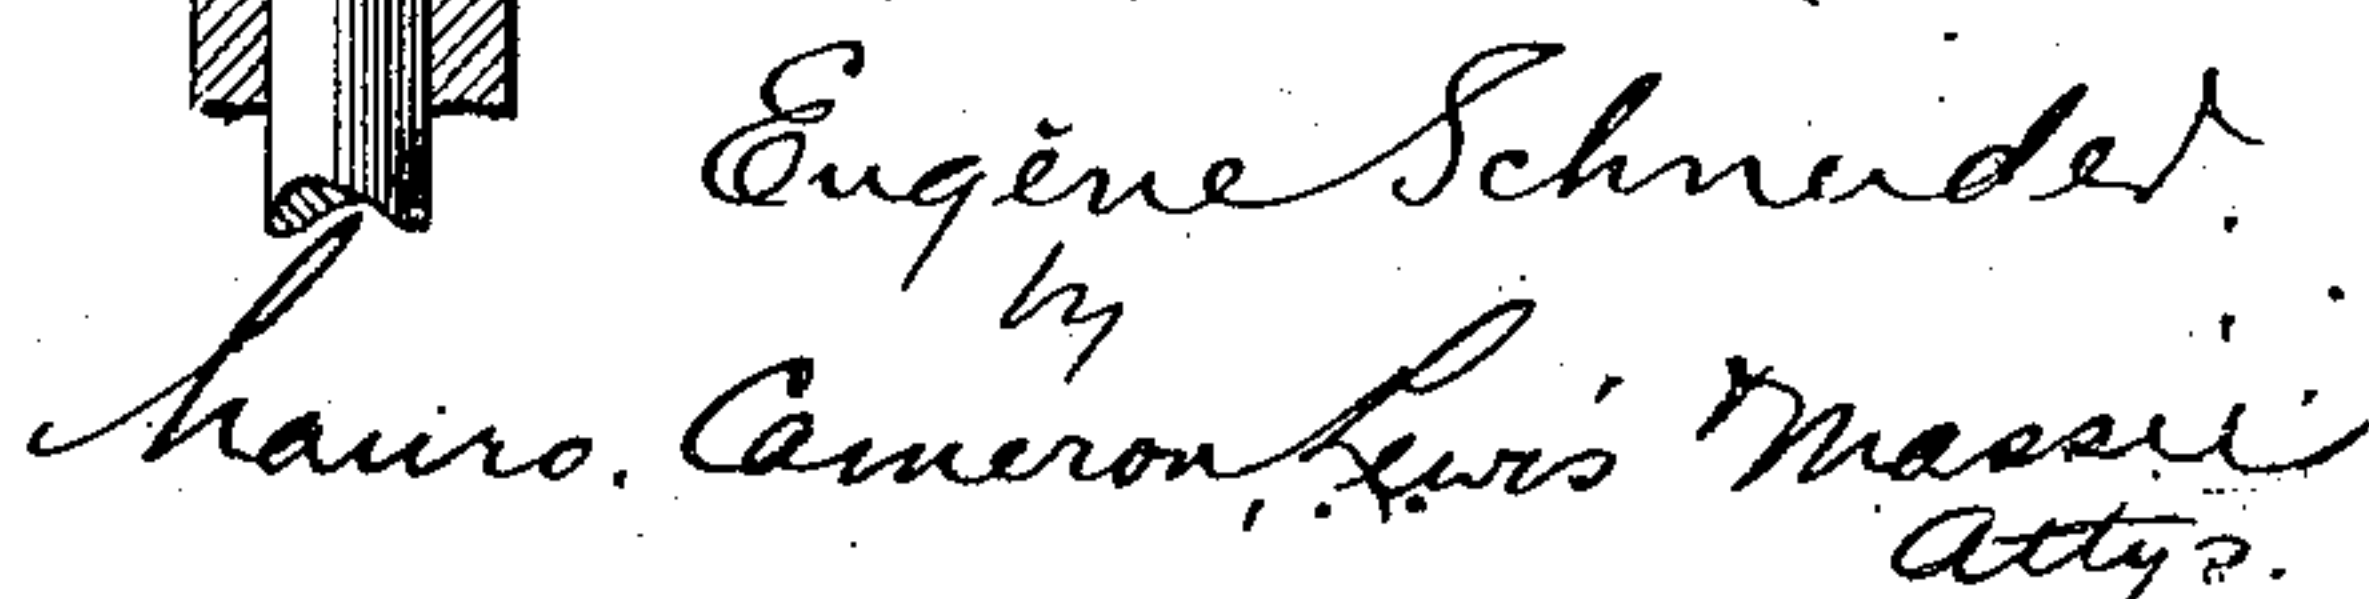 Eugène Schneider.
by
Mauro, Cameron, Lewis & Massie
Attys.